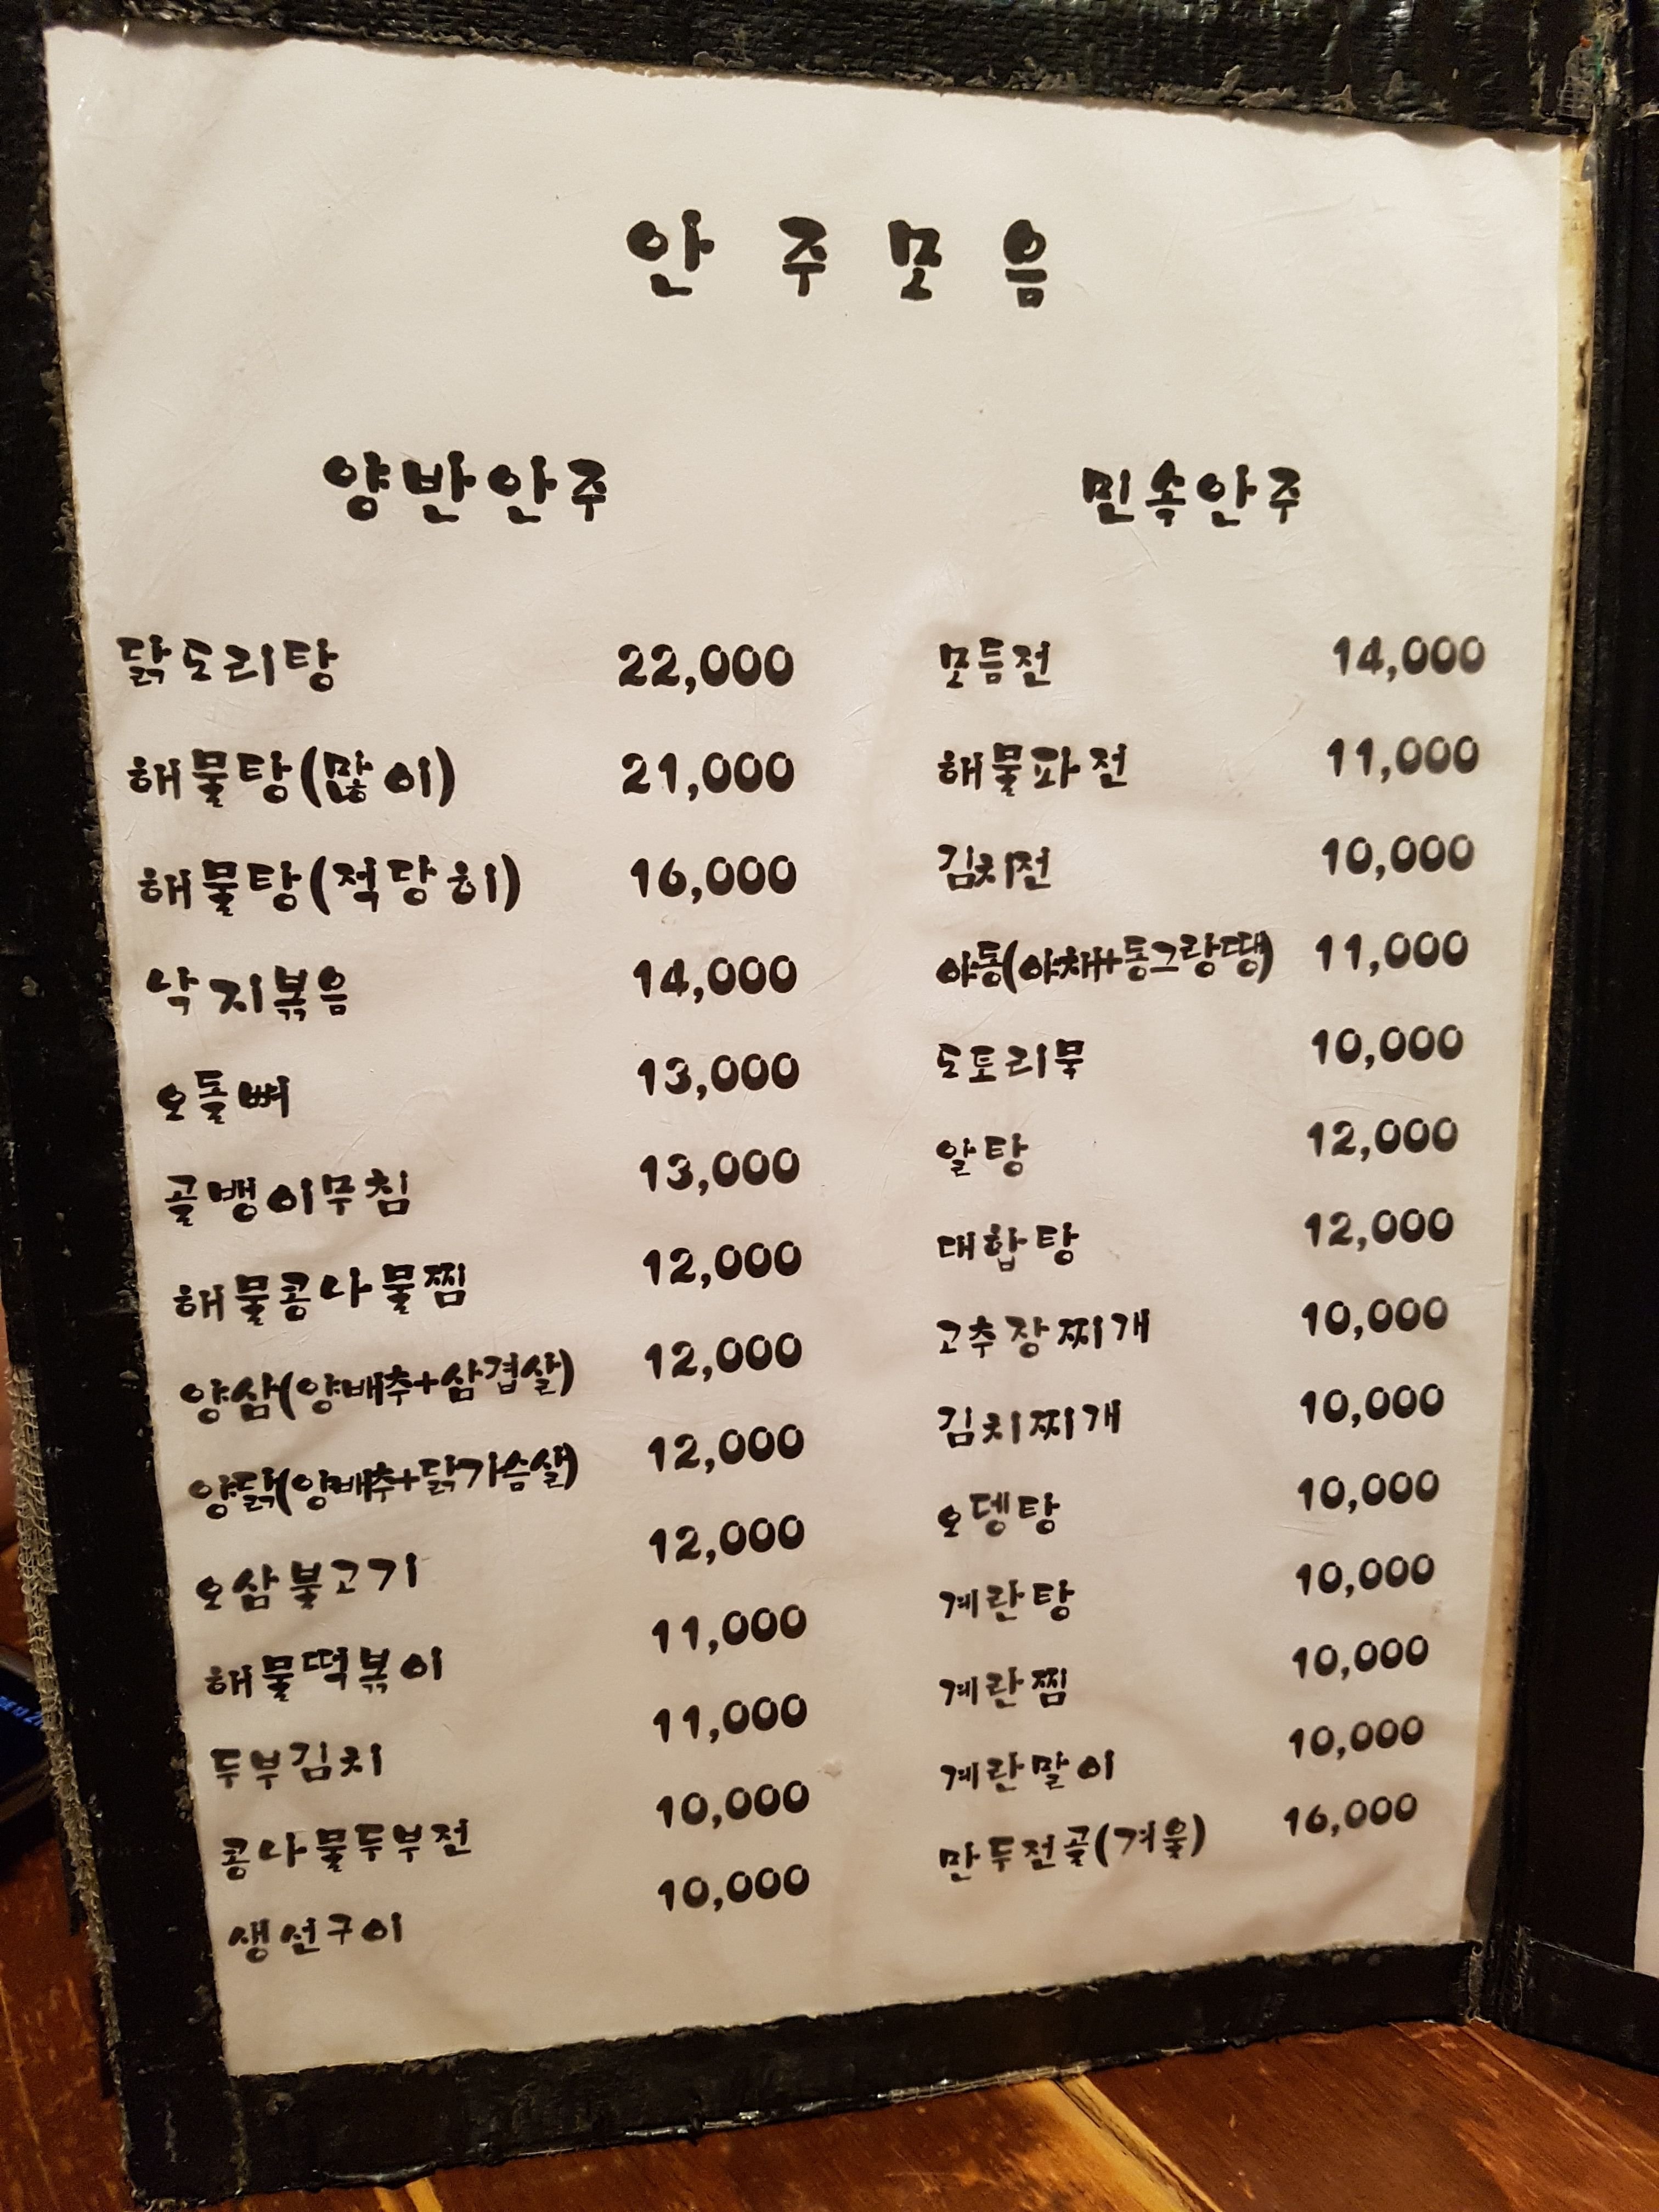 안주모음
양반안주
닭도리탕 22,000
해물탕(많이) 21,000
해물탕(적당히) 16,000
낙지볶음 14,000
오돌뼈 13,000
골뱅이무침 13,000
해물콩나물찜 12,000
양삼(양배추+삼겹살) 12,000
양닭(양배추+닭가슴살) 12,000
오삼불고기 12,000
해물떡볶이 11,000
두부김치 11,000
콩나물두부전 10,000
생선구이 10,000
민속안주
모듬전 14,000
해물파전 11,000
김치전 10,000
야동(야채+동그랑땡) 11,000
도토리묵 10,000
알탕 12,000
대합탕 12,000
고추장찌개 10,000
김치찌개 10,000
오뎅탕 10,000
계란탕 10,000
계란찜 10,000
계란말이 10,000
만두전골(겨울) 16,000